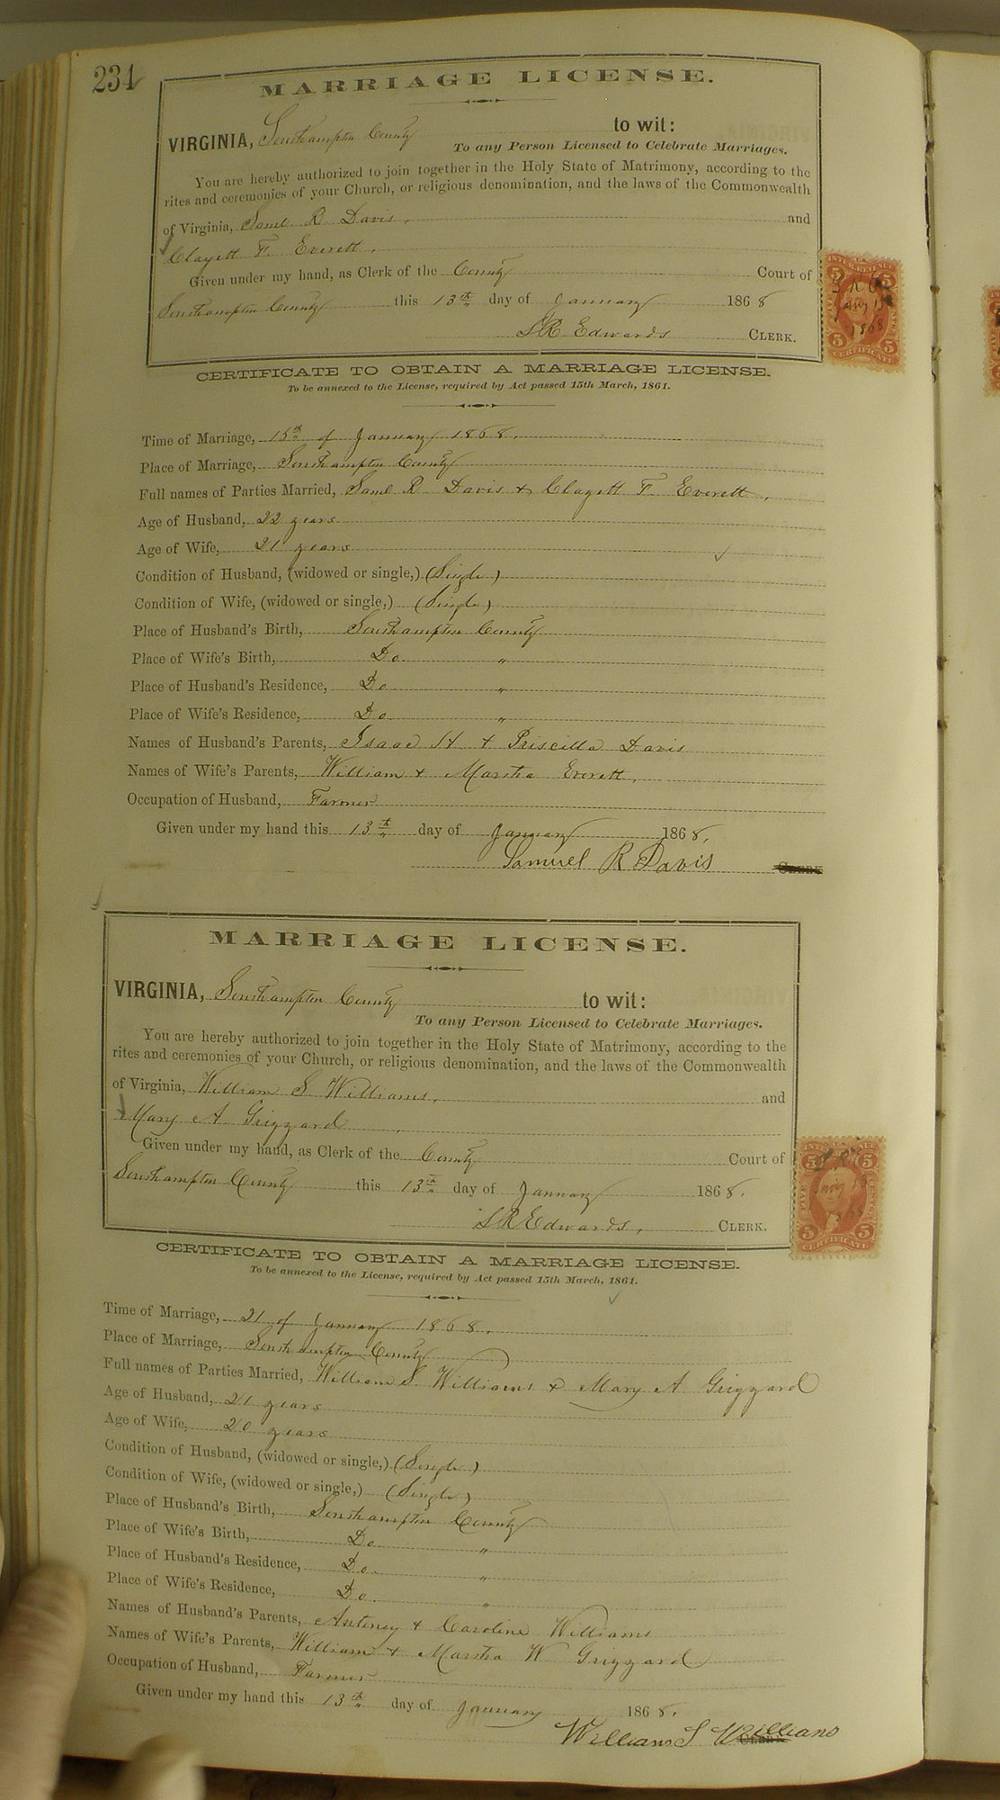 231
MARRIAGE LICENSE.
VIRGINIA, Southampton County to wit:
To any Person Licensed to Celebrate Marriages.
You are hereby authorized to join together in the Holy State of Matrimony, according to the
rites and ceremonies of your Church, or religious denomination, and the laws of the Commonwealth
of Virginia, Saml R Davis, and
Clayett F. Everett,
Given under my hand, as Clerk of the County Court of
Southampton County this 13th day of January 1868
LR Edwards CLERK.
CERTIFICATE TO OBTAIN A MARRIAGE LICENSE.
To be annexed to the License, required by Act passed 15th March, 1861.
Time of Marriage, 15th of January 1868.
Place of Marriage, Southampton County
Full names of Parties Married, Saml R Davis & Clayett F. Everett,
Age of Husband, 22 years
Age of Wife, 21 years
Condition of Husband, (widowed or single,) (Single)
Condition of Wife, (widowed or single,) (Single)
Place of Husband's Birth, Southampton County
Place of Wife's Birth, Do "
Place of Husband's Residence, Do "
Place of Wife's Residence, Do "
Names of Husband's Parents, Isaac H & Priscilla Davis
Names of Wife's Parents, William & Martha Everett,
Occupation of Husband, Farmer
Given under my hand this 13th day of January 1868,
Samuel R Davis
MARRIAGE LICENSE.
VIRGINIA, Southampton County to wit:
To any Person Licensed to Celebrate Marriages.
You are hereby authorized to join together in the Holy State of Matrimony, according to the
rites and ceremonies of your Church, or religious denomination, and the laws of the Commonwealth
of Virginia, William S Williams, and
Mary A Grizzard,
Given under my hand, as Clerk of the County Court of
Southampton County this 13th day of January 1868.
LR Edwards, CLERK.
CERTIFICATE TO OBTAIN A MARRIAGE LICENSE.
To be annexed to the License, required by Act passed 15th March, 1861.
Time of Marriage, 21 of January 1868,
Place of Marriage, Southampton County
Full names of Parties Married, William S. Williams & Mary A Grizzard
Age of Husband, 21 years
Age of Wife, 20 years
Condition of Husband, (widowed or single,) (Single)
Condition of Wife, (widowed or single,) (Single)
Place of Husband's Birth, Southampton County
Place of Wife's Birth, Do "
Place of Husband's Residence, Do. "
Place of Wife's Residence, Do. "
Names of Husband's Parents, Anteney & Caroline Williams
Names of Wife's Parents, William & Martha W Grizzard
Occupation of Husband, Farmer
Given under my hand this 13th day of January 1868.
William S Williams